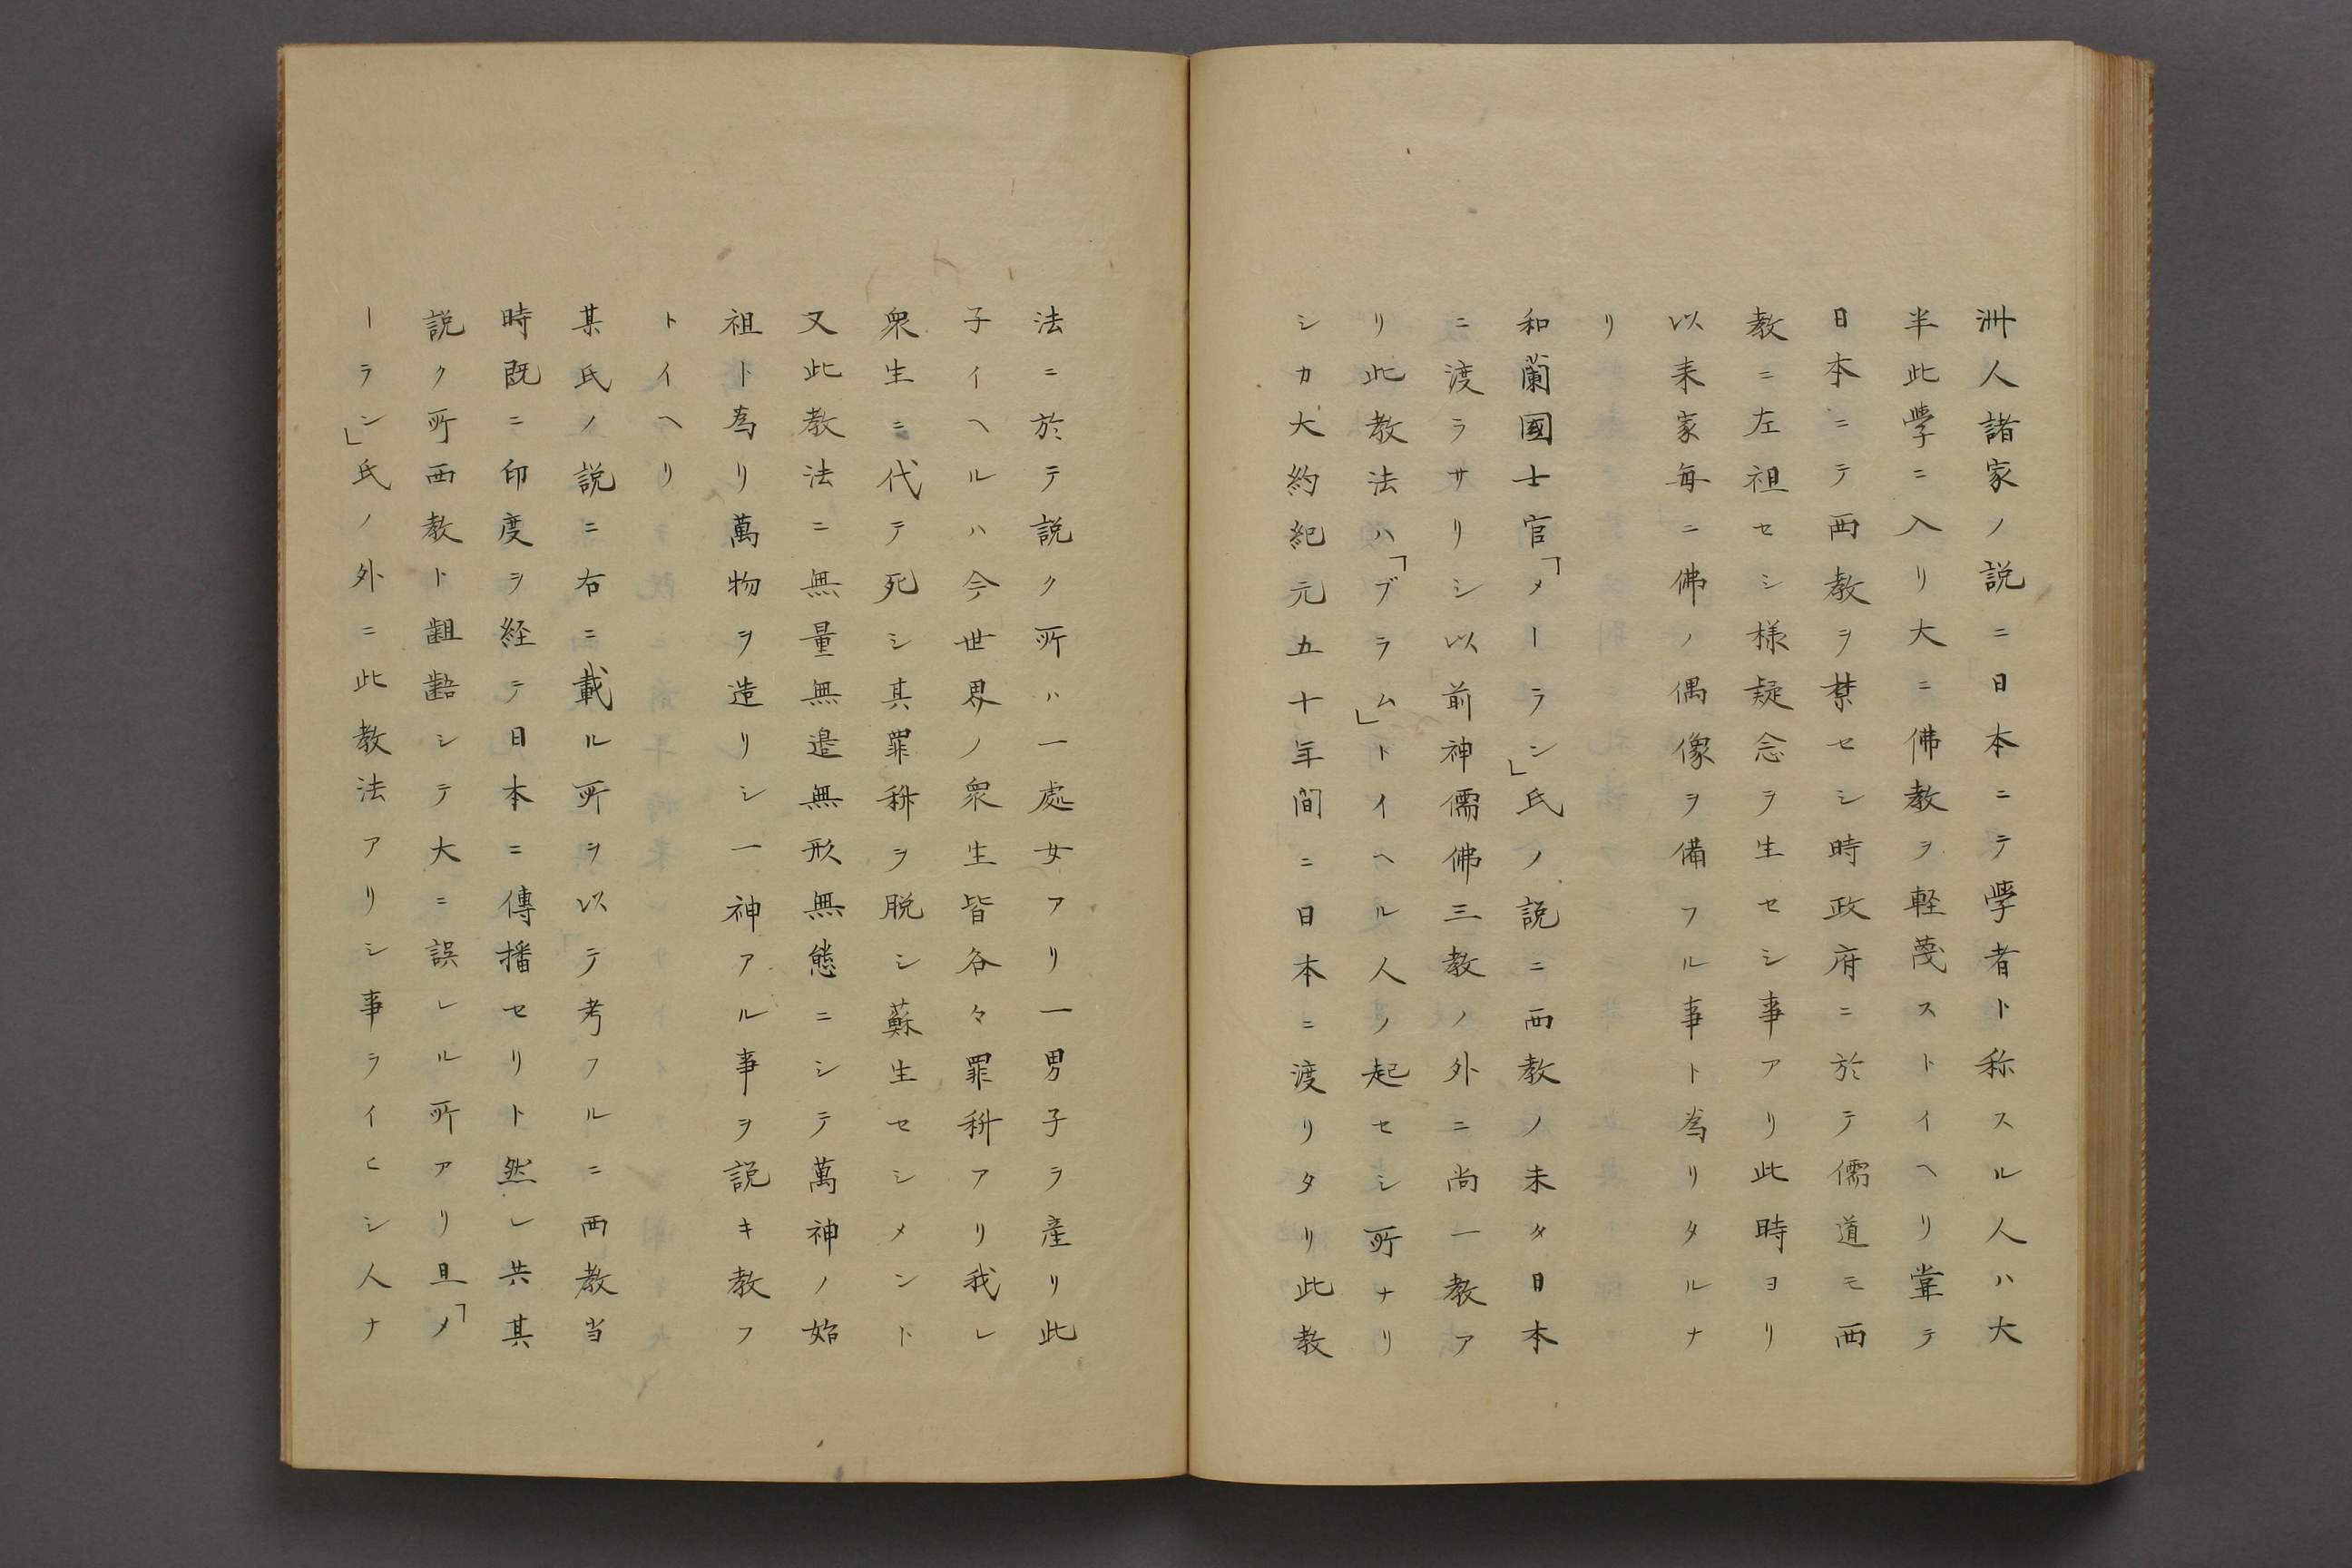 洲人諸家ノ説ニ日本ニテ學者ト称スル人ハ大
半此學ニ入リ大ニ佛教ヲ軽蔑ストイヘリ甞テ
日本ニテ西教ヲ禁セシ時政府ニ於テ儒道モ西
教ニ左祖セシ様疑念ヲ生セシ事アリ此時ヨリ
以来家毎ニ佛ノ偶像ヲ備フル事ト為リタルナ
リ
和蘭國士官「メーラン」氏ノ説ニ西教ノ未タ日本
ニ渡ラサリシ以前神儒佛三教ノ外ニ尚一教ア
リ此教法ハ「ブラム」トイヘル人ノ起セシ所ナリ
シカ大約紀元五十年間ニ日本ニ渡リタリ此教
法ニ於テ説ク所ハ一處女アリ一男子ヲ産リ此
子イヘルハ今世界ノ衆生皆各々罪科アリ我レ
衆生ニ代テ死シ其罪科ヲ脱シ蘇生セシメント
又此教法ニ無量無邉無形無態ニシテ萬神ノ始
祖ト為リ萬物ヲ造リシ一神アル事ヲ説キ教フ
トイヘリ
某氏ノ説ニ右ニ載ル所ヲ以テ考フルニ西教当
時既ニ印度ヲ経テ日本ニ傳播セリト然レ共其
説ク所西教ト齟齬シテ大ニ誤レル所アリ且「メ
ーラン」氏ノ外ニ此教法アリシ事ヲイヒシ人ナ